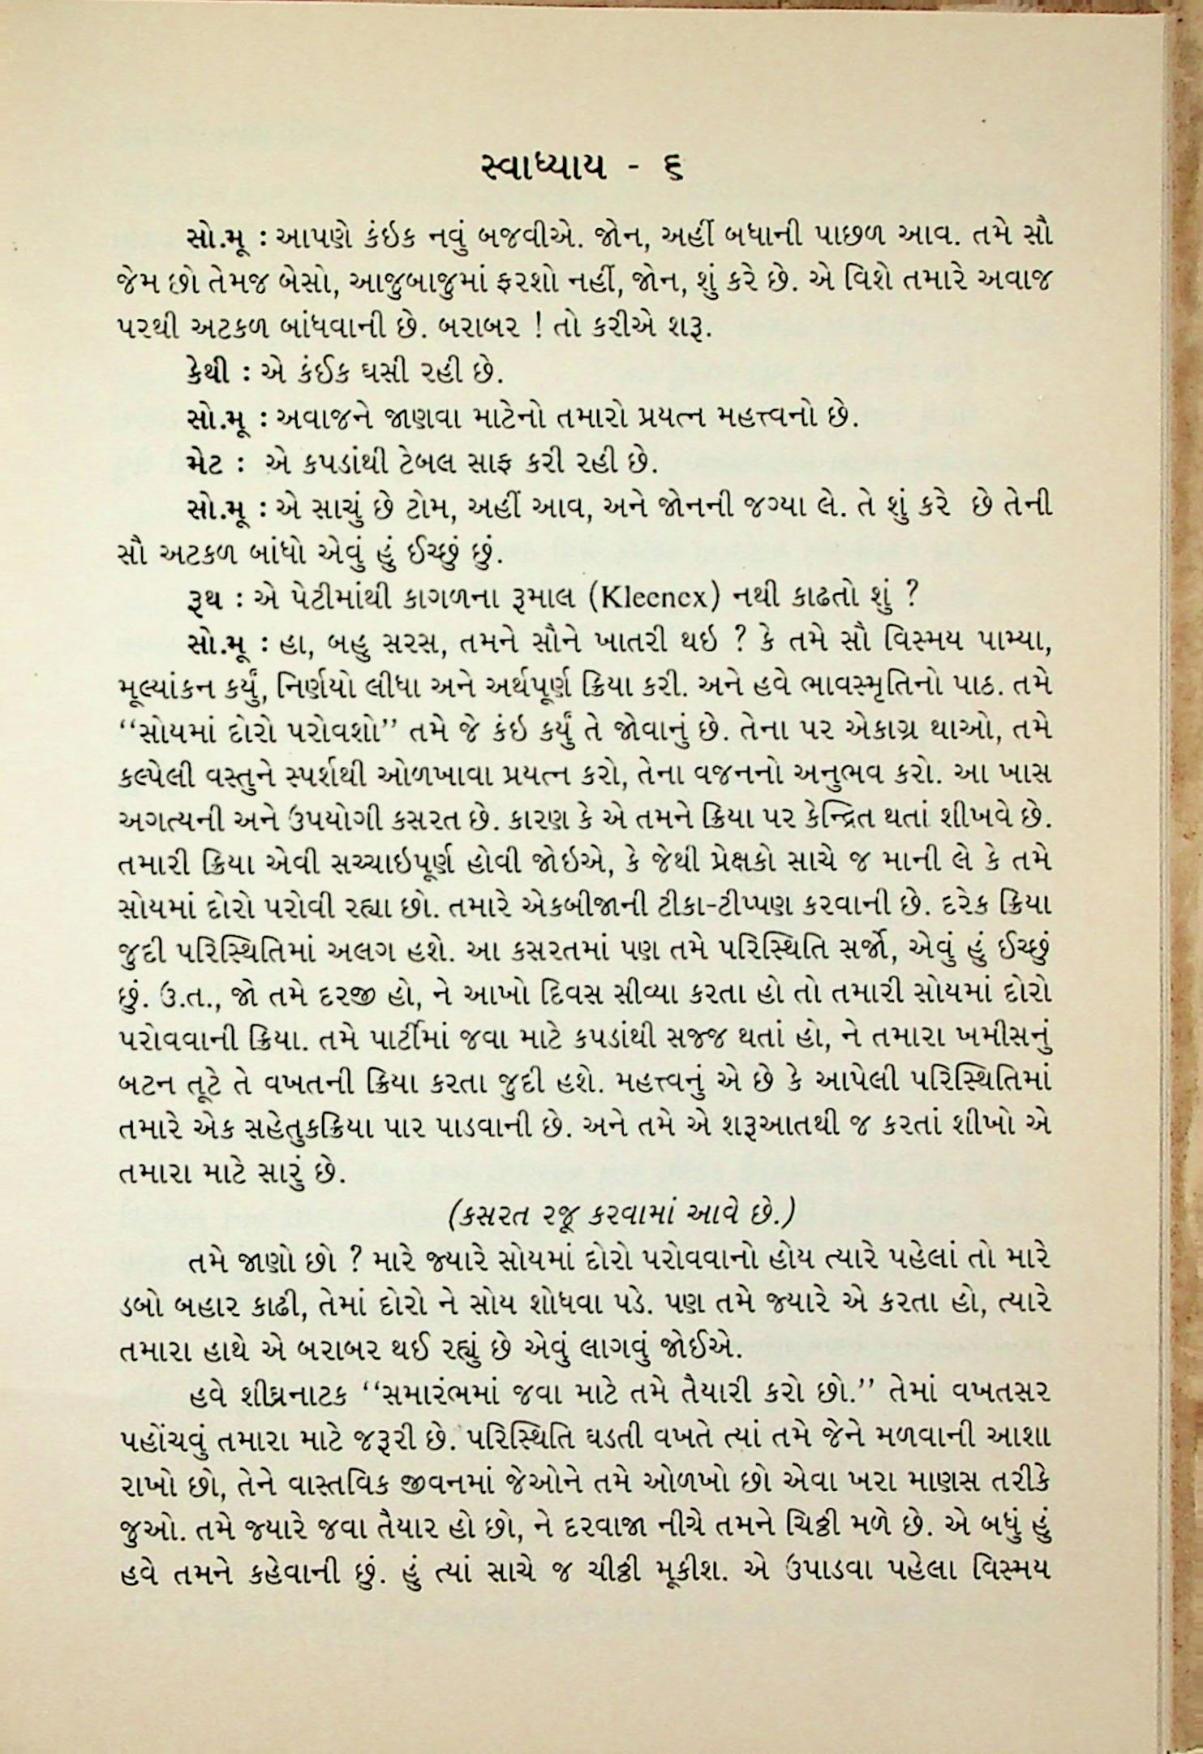 સ્વાધ્યાય - ૬
સો.મૂ : આપણે કંઇક નવું બજવીએ. જોન, અહીં બધાની પાછળ આવ. તમે સૌ
જેમ છો તેમજ બેસો, આજુબાજુમાં ફરશો નહીં, જોન, શું કરે છે. એ વિશે તમારે અવાજ
પરથી અટકળ બાંધવાની છે. બરાબર ! તો કરીએ શરૂ.
કેથી : એ કંઈક ઘસી રહી છે.
સો.મૂ : અવાજને જાણવા માટેનો તમારો પ્રયત્ન મહત્ત્વનો છે.
મેટ : એ કપડાંથી ટેબલ સાફ કરી રહી છે.
સો.મૂ : એ સાચું છે ટોમ, અહીં આવ, અને જોનની જગ્યા લે. તે શું કરે છે તેની
સૌ અટકળ બાંધો એવું હું ઈચ્છું છું.
રૂથ : એ પેટીમાંથી કાગળના રૂમાલ (Kleenex) નથી કાઢતો શું ?
સો.મૂ : હા, બહુ સરસ, તમને સૌને ખાતરી થઇ ? કે તમે સૌ વિસ્મય પામ્યા,
મૂલ્યાંકન કર્યું, નિર્ણયો લીધા અને અર્થપૂર્ણ ક્રિયા કરી. અને હવે ભાવસ્મૃતિનો પાઠ. તમે
‘‘સોયમાં દોરો પરોવશો’’ તમે જે કંઇ કર્યું તે જોવાનું છે. તેના પર એકાગ્ર થાઓ, તમે
કલ્પેલી વસ્તુને સ્પર્શથી ઓળખાવા પ્રયત્ન કરો, તેના વજનનો અનુભવ કરો. આ ખાસ
અગત્યની અને ઉપયોગી કસરત છે. કારણ કે એ તમને ક્રિયા પર કેન્દ્રિત થતાં શીખવે છે.
તમારી ક્રિયા એવી સચ્ચાઇપૂર્ણ હોવી જોઇએ, કે જેથી પ્રેક્ષકો સાચે જ માની લે કે તમે
સોયમાં દોરો પરોવી રહ્યા છો. તમારે એકબીજાની ટીકા-ટીપ્પણ કરવાની છે. દરેક ક્રિયા
જુદી પરિસ્થિતિમાં અલગ હશે. આ કસરતમાં પણ તમે પરિસ્થિતિ સર્જો, એવું હું ઈચ્છું
છું. ઉ.ત., જો તમે દરજી હો, ને આખો દિવસ સીવ્યા કરતા હો તો તમારી સોયમાં દોરો
પરોવવાની ક્રિયા. તમે પાર્ટીમાં જવા માટે કપડાંથી સજ્જ થતાં હો, ને તમારા ખમીસનું
બટન તૂટે તે વખતની ક્રિયા કરતા જુદી હશે. મહત્ત્વનું એ છે કે આપેલી પરિસ્થિતિમાં
તમારે એક સહેતુકક્રિયા પાર પાડવાની છે. અને તમે એ શરૂઆતથી જ કરતાં શીખો એ
તમારા માટે સારું છે.
(કસરત રજૂ કરવામાં આવે છે.)
તમે જાણો છો ? મારે જ્યારે સોયમાં દોરો પરોવવાનો હોય ત્યારે પહેલાં તો મારે
ડબો બહાર કાઢી, તેમાં દોરો ને સોય શોધવા પડે. પણ તમે જ્યારે એ કરતા હો, ત્યારે
તમારા હાથે એ બરાબર થઈ રહ્યું છે એવું લાગવું જોઈએ.
હવે શીઘ્રનાટક ‘‘સમારંભમાં જવા માટે તમે તૈયારી કરો છો.’’ તેમાં વખતસર
પહોંચવું તમારા માટે જરૂરી છે. પરિસ્થિતિ ઘડતી વખતે ત્યાં તમે જેને મળવાની આશા
રાખો છો, તેને વાસ્તવિક જીવનમાં જેઓને તમે ઓળખો છો એવા ખરા માણસ તરીકે
જુઓ. તમે જ્યારે જવા તૈયાર હો છો, ને દરવાજા નીચે તમને ચિઠ્ઠી મળે છે. એ બધું હું
હવે તમને કહેવાની છું. હું ત્યાં સાચે જ ચીઠ્ઠી મૂકીશ. એ ઉપાડવા પહેલા વિસ્મય